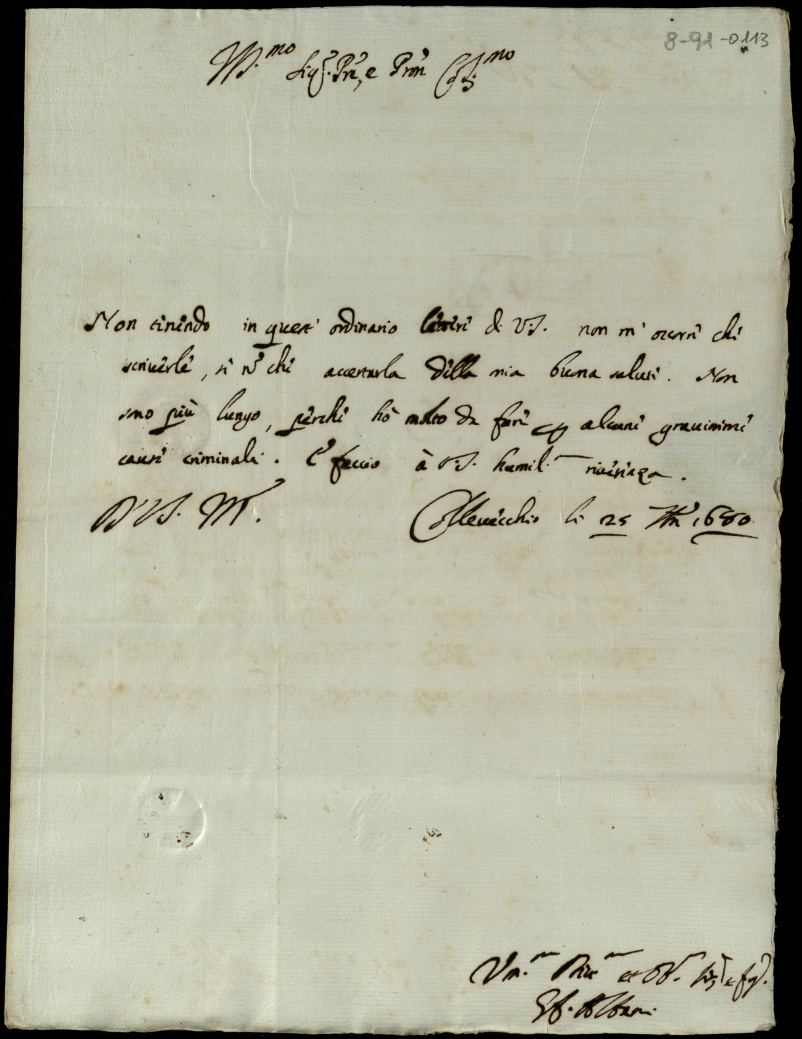 8-91-0113
Ill.mo Sig.r Prē, e Pron Col.mo
Non tenendo in quest' ordinario lettere di V.S. non m' occorre che
scriverle, se nō che accertarla della mia buona salute. Non
sono più lungo, perche hò molto da fare alcune gravissime
cause criminali. E faccio à V.S. humil.ma riverenza.
D V.S. Ill.
Collevecchio li 25 1680
Um.mo et
Alban